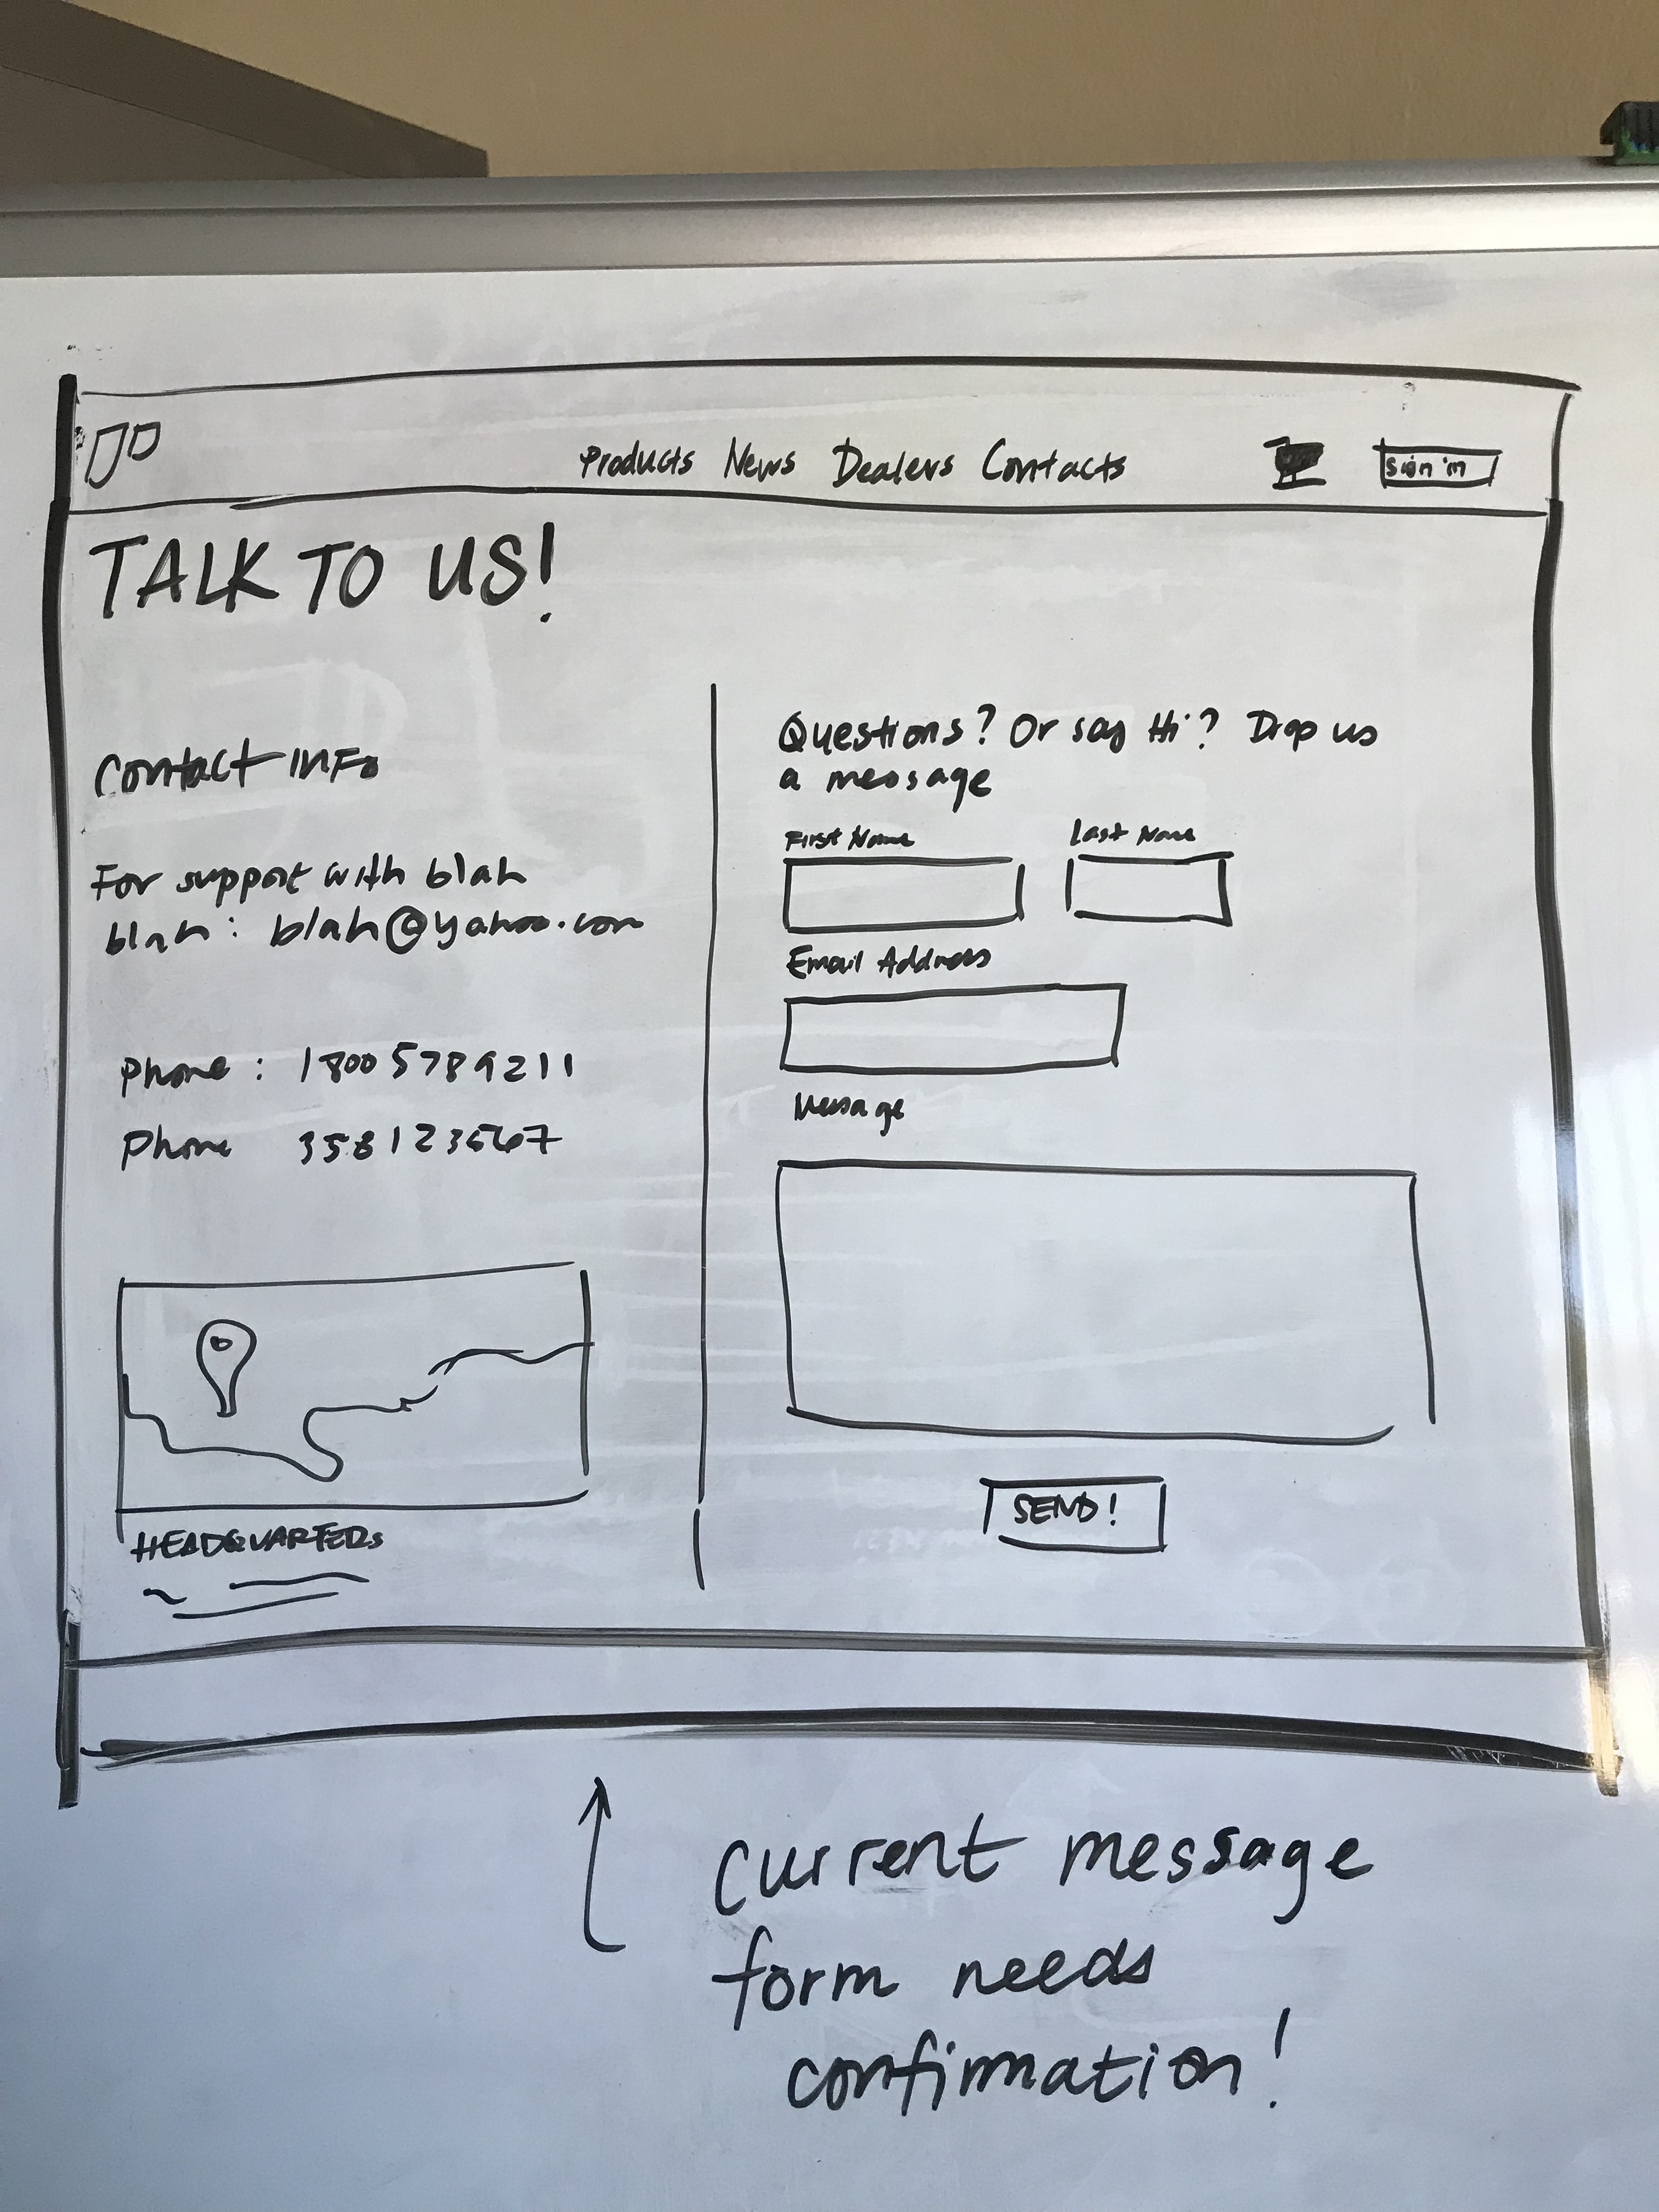 Products News Dealers Contacts
sign in
TALK TO US!
Contact INFo
For support with blah
blah: blah@yahoo.com
Phone: 1800 5789211
Phone 3581234567
HEADQUARTERS
Questions? Or say Hi? Drop us
a message
First Name Last Name
Email Address
Message
SEND!
current message
form needs
confirmation!